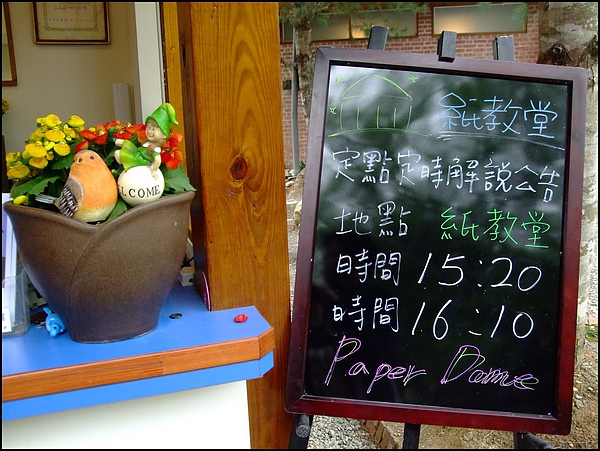 WELCOME
紙教堂
定點定時解說公告
地點 紙教堂
時間 15:20
時間 16:10
Paper Dome